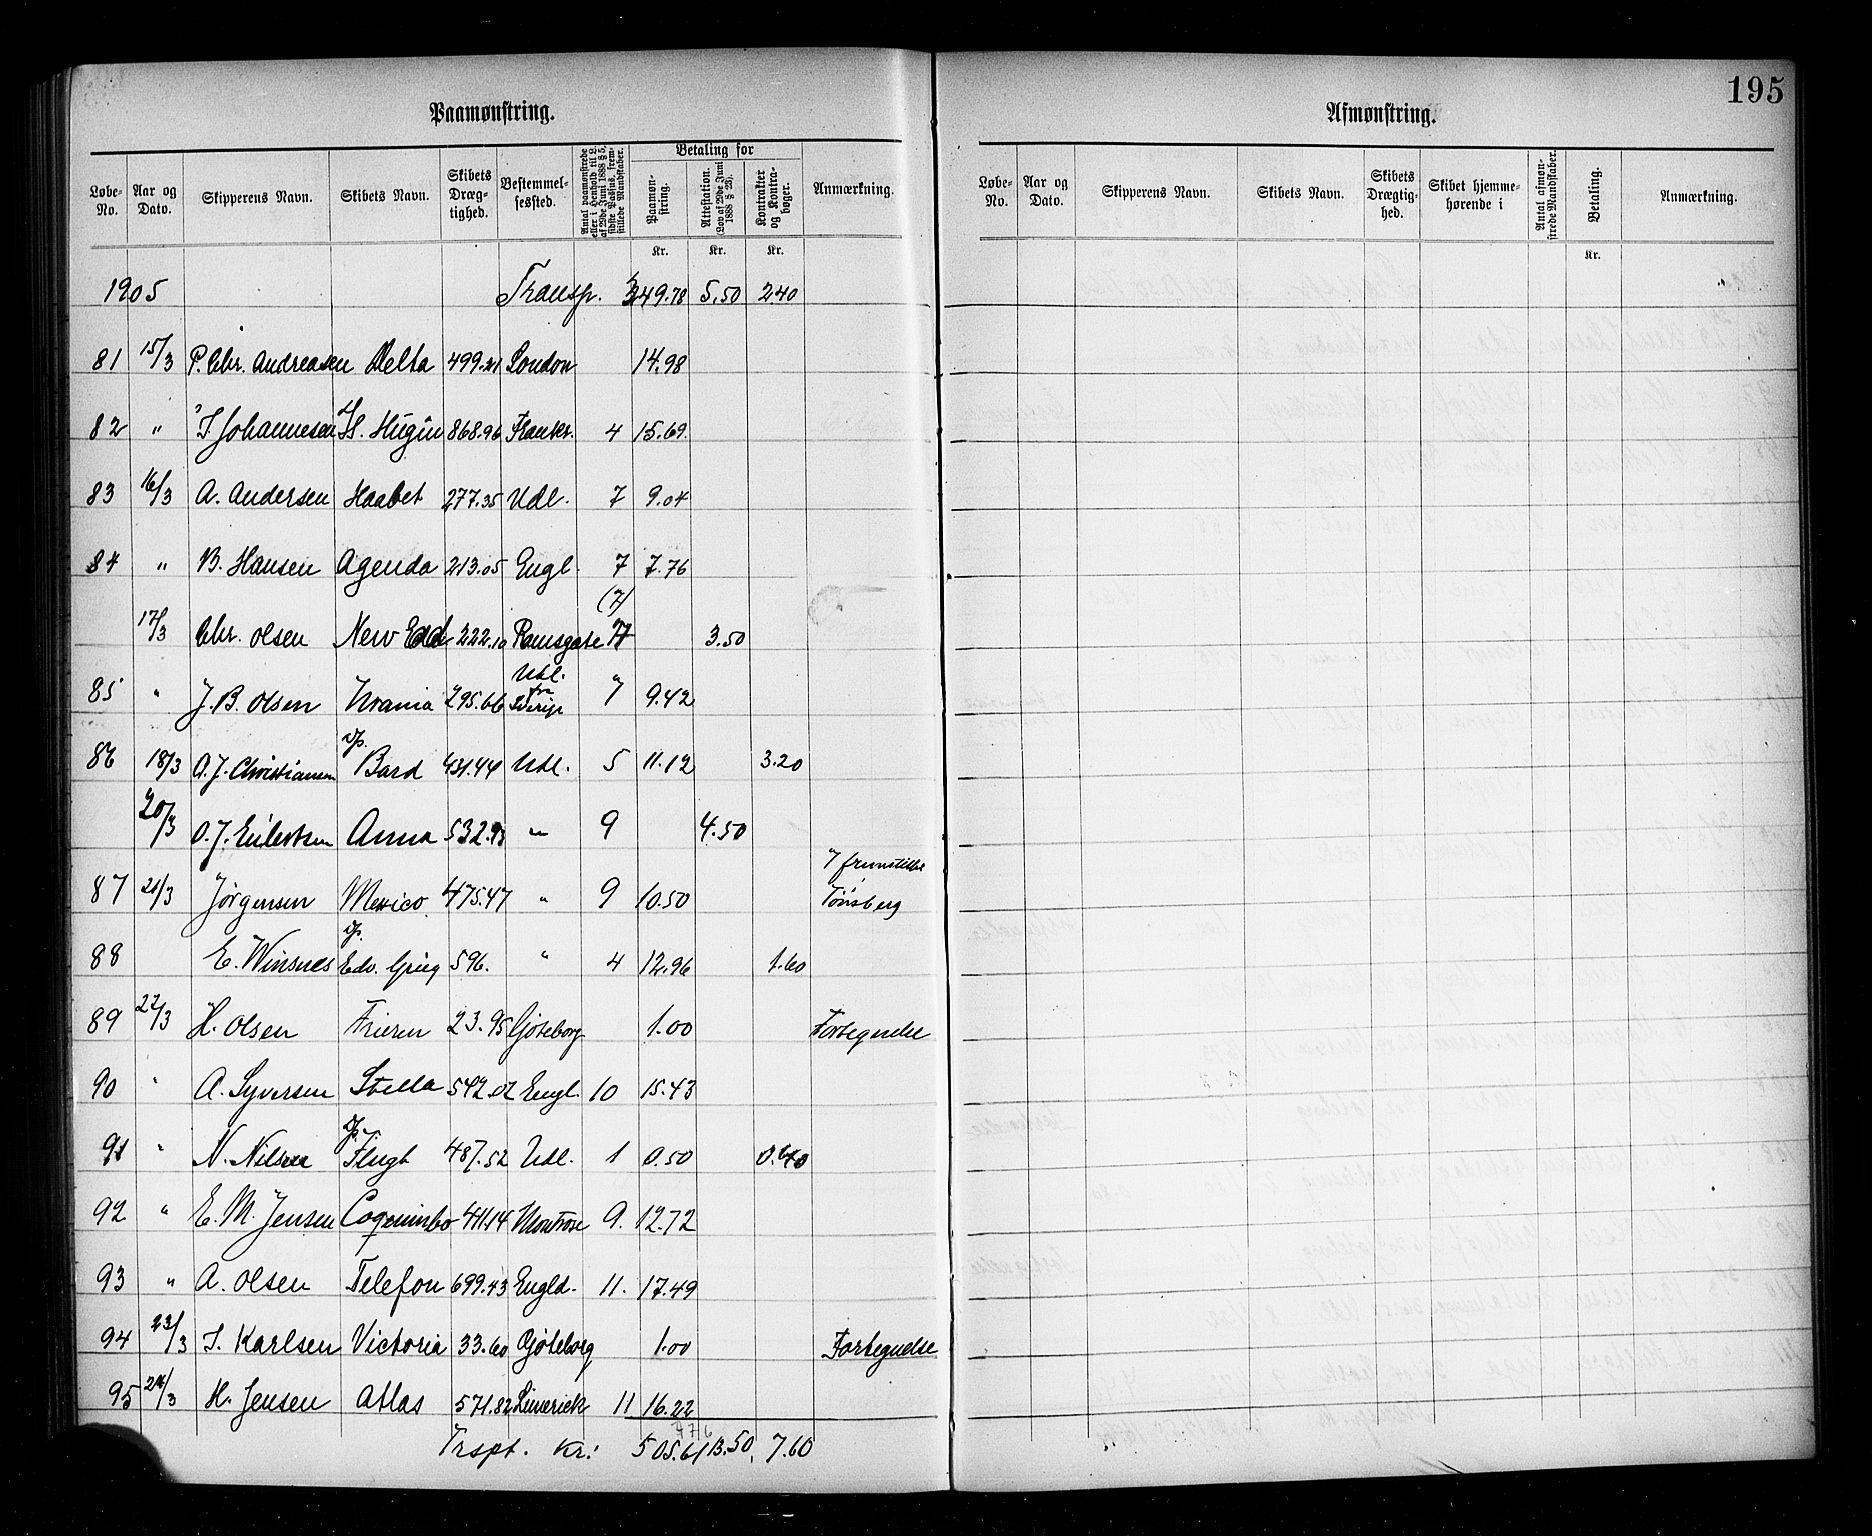 195
Paamønstring.
Afmønstring.
Løbe-No. Aar og Dato. Skipperens Navn. Skibets Navn. Skibets Dræg-tighed. Bestemmel-sessted. Antal paamønstrede eller i Henhold til L. af 29de Juni 1888 § 5, sidste Passus, frem-stillede Mandskaber. Betaling for Paamøn-string. Attestation. (Lov af 29de Juni 1888 § 23). Kontrakter og Kontra-bøger. Anmærkning.
Kr. Kr. Kr.
Løbe-No. Aar og Dato. Skipperens Navn. Skibets Navn. Skibets Drægtig-hed. Skibet hjemme-hørende i Antal afmøn-strede Mandskaber. Betaling. Anmærkning.
Kr.
1905 Transp. 349.78 5.50 2.40
81 15/3 P. Chr. Andreasen Delta 499.21 London 14.98
82 " J. Johannesen Hugin 868.96 Frankr. 4 15.69
83 16/3 A. Andersen Haabet 277.35 Udl. 7 9.04
84 " B. Hansen Agenda 213.05 Engl. 7 7.76
(7)
17/3 Chr. Olsen New 222.10 Ramsgate 7 3.50
85 " J. B. Olsen Urania 295.66 Udl. fra Sverige 7 9.42
86 18/3 A. J. Christiansen Bard 431.44 Udl. 5 11.12 3.20
20/3 O. J. Eilertsen Anna 532.93 " 9 4.50
87 21/3 Jørgensen Mexico 475.47 " 9 10.50 7 fremstillet Tønsberg
88 E. Winsnes Edv. Grieg 596. " 4 12.96 1.60
89 22/3 H. Olsen Frieren 23.95 Gøteborg 1.00 Fortegnelse
90 " A. Syversen Stella 542.02 Engl. 10 15.43
91 " N. Nilsen Flugt 487.52 Udl. 1 0.50 0.40
92 " E. M. Jensen Coquimbo 411.14 Montrose 9. 12.72
93 " A. Olsen Telefon 699.43 Engld. 11. 17.49
94 23/3 J. Karlsen Victoria 33.60 Gøteborg 1.00 Fortegnelse
95 24/3 H. Jensen Atlas 571.82 Limerick 11 16.22
Trspt. Kr: 505.61 13.50 7.60